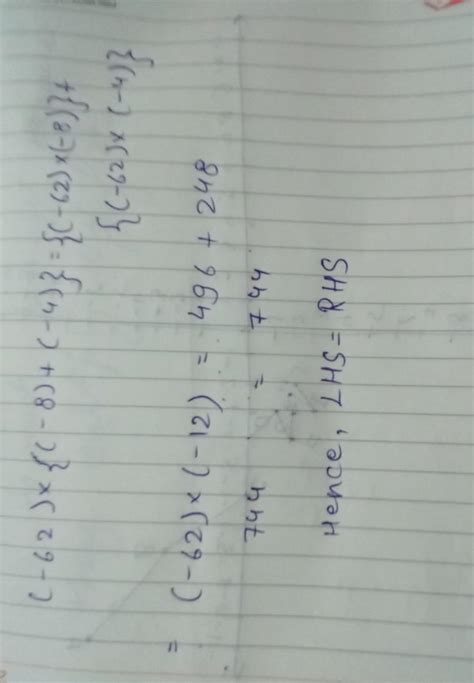 (-62)×{(-8)+(-4)}={(-62)×(-8)}+
{(-62)×(-4)}
= (-62)×(-12) = 496 + 248
744 = 744
Hence, LHS = RHS